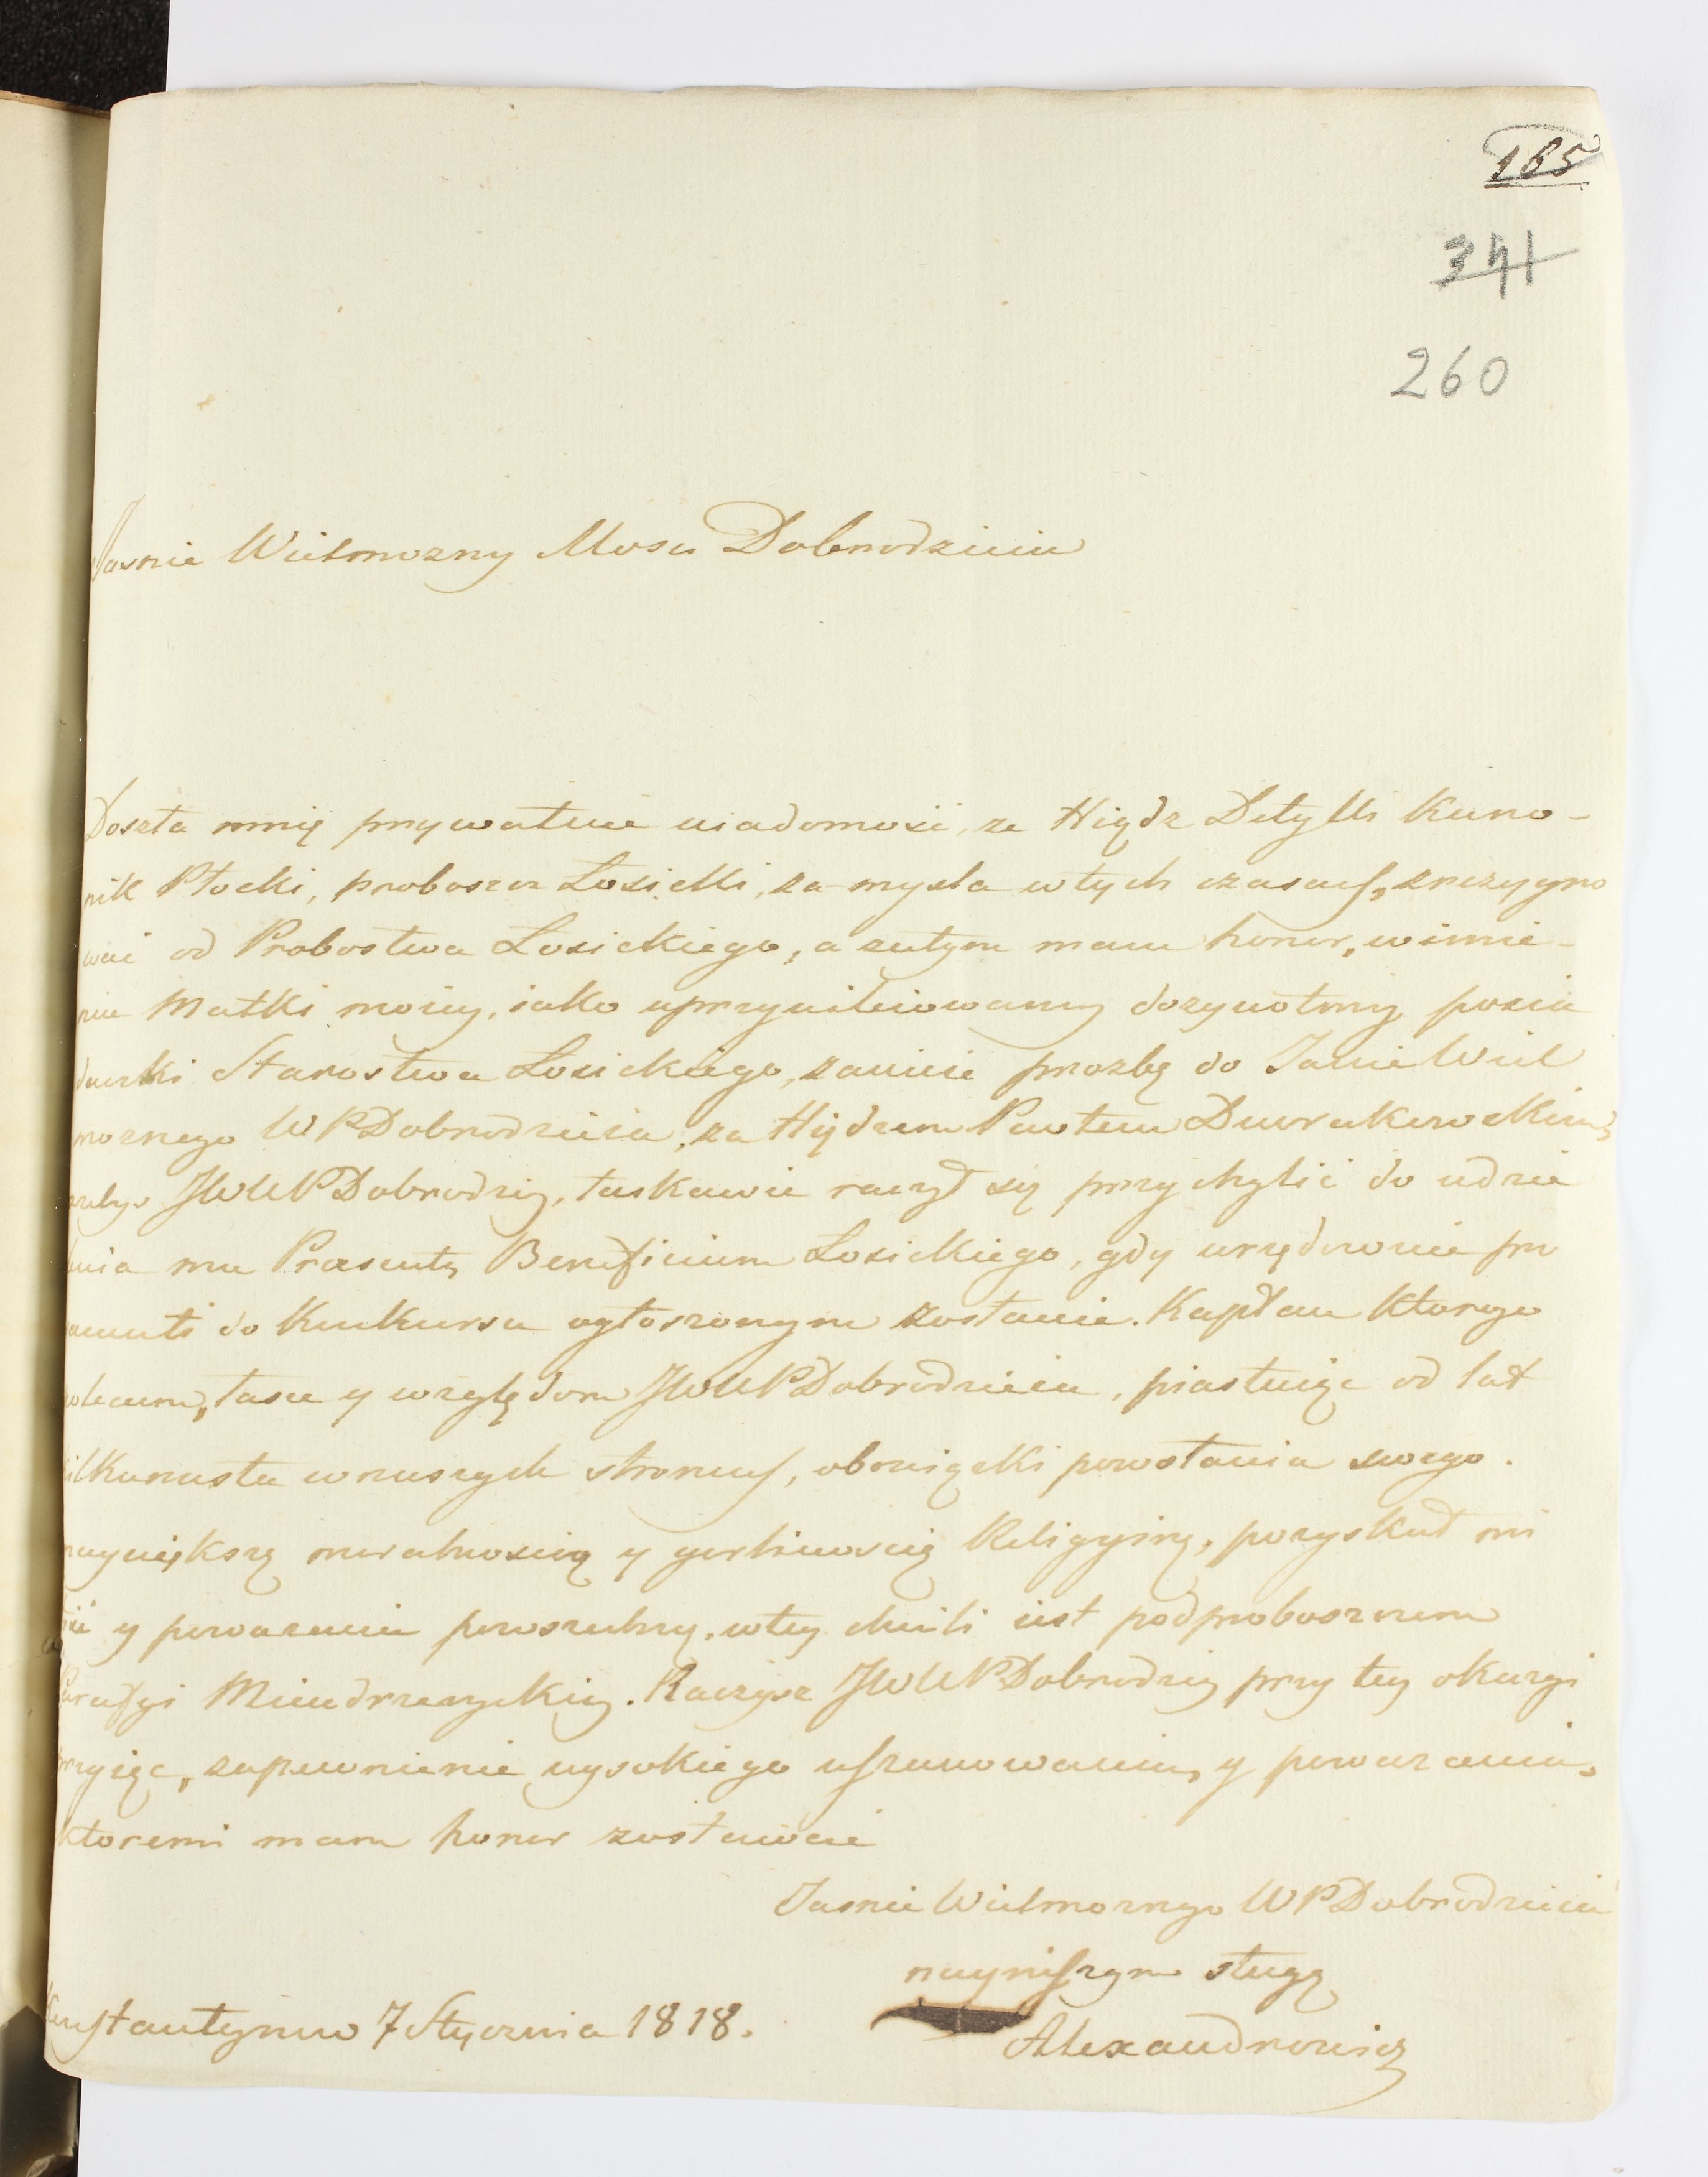 165
341
260
Jasnie Wielmozny Mosci Dobrodzieiu
Doszła mnię prywatnie wiadomość, że Xiądz Kano-
nik Płocki, proboszcz Łosicki, za-mysla w tych czasach, zrezygno
wać od Probostwa Łosickiego, a zatym mam honor, w imie-
niu Matki moiey, iako uprzywileiowaney dozywotney posia
daczki Starostwa Łosickiego, zanieść prozbę do Jasnie Wiel
moznego WPDobrodzieia, za Xiędzem Pawłem Dworakowskim,
azebyś JWWPDobrodziey, łaskawie raczył się przychylić do udzie
lenia mu Prezenty Beneficium Łosickiego, gdy urzędownie
do Konkursu ogłoszonym zostanie. Kapłan ktorego
polecam, łasce y względom JWWPDobrodzieia, piastuiąc od lat
kilkunastu w naszych stronach, obowiązki powołania swego.
naywiększą moralnością y gorliwością Religyiną, pozyskał mi
łość y poważanie powszechne, w tey chwili iest podproboszczem
Parafyi Miendrzeyckiey. Raczysz JWWPDobrodziey przy tey okazyi
przyiąć, zapewnienie wysokiego uszanowania, y poważania,
ktoremi mam honor zostawać
Jasnie Wielmoznego WPDobrodzieia
nayniszym sługą
Konstantynow 7 Stycznia 1818.
Alexandrowicz